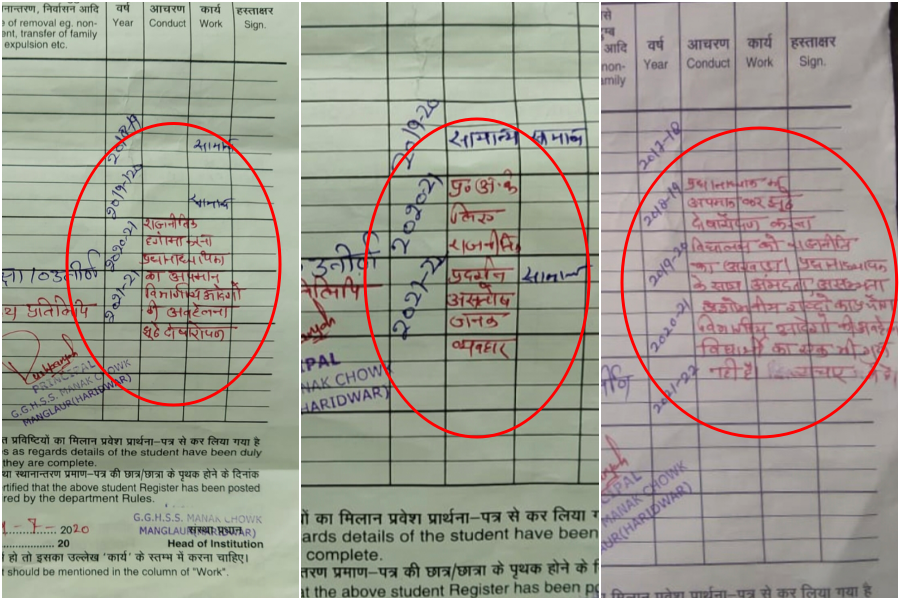 नान्तरण, निर्वासन आदि
e of removal eg. non-
ent, transfer of family
expulsion etc.
वर्ष
Year
आचरण
Conduct
कार्य
Work
हस्ताक्षर
Sign.
2018-19
सामान्य
2019-20
सामान्य
2020-21
2021-22
राजनीतिक
हंगामा करना
प्रधानाध्यापिका
का अपमान
विभागीय आदेशों
की अवहेलना
झूठे दोषारोपन
उत्तीर्ण
प्रतिलिपि
PRINCIPAL
G.G.H.S.S. MANAK CHOWK
MANGLAUR(HARIDWAR)
त प्रविष्टियों का मिलान प्रवेश प्रार्थना–पत्र से कर लिया गया है
s as regards details of the student have been duly
they are complete.
था स्थानान्तरण प्रमाण–पत्र की छात्र/छात्रा के पृथक होने के दिनांक
rtified that the above student Register has been posted
red by the department Rules.
7 - 2020
20
G.G.H.S.S. MANAK CHOWK
MANGLAUR(HARIDWAR)
संस्था प्रधान
Head of Institution
हो तो इसका उल्लेख 'कार्य' के स्तम्भ में करना चाहिए।
should be mentioned in the column of "Work".
2019-20
सामान्य सामान्य
2020-21
2021-22
प्र० अ० के
विरुद्ध
राजनीतिक
प्रदर्शन सामान्य
असंतोष
जनक
व्यवहार
उत्तीर्ण
IPAL
NAK CHOWK
HARIDWAR)
ों का मिलान प्रवेश प्रार्थना–पत्र से कर लिया ग
ards details of the student have been
complete.
तरण प्रमाण–पत्र की छात्र/छात्रा के पृथक होने के
t the above student Register has been po
से
म्ब
आदि
non-
mily
वर्ष
Year
आचरण
Conduct
कार्य
Work
हस्ताक्षर
Sign.
2017-18
2018-19
2019-20
2020-21
2021-22
अपमान कर झूठे
दोषारोपण करना
विद्यालय को राजनीति
का अखाड़ा प्रधानाध्यापक
के साथ अभद्रता
विभागीय आदेशों की अवहेलना
विद्यार्थी का एक भी गुण
नहीं है
CIPAL
NAK CHOWK
AUR(HARIDWAR)
का मिलान प्रवेश प्रार्थना–पत्र से कर लिया गया है